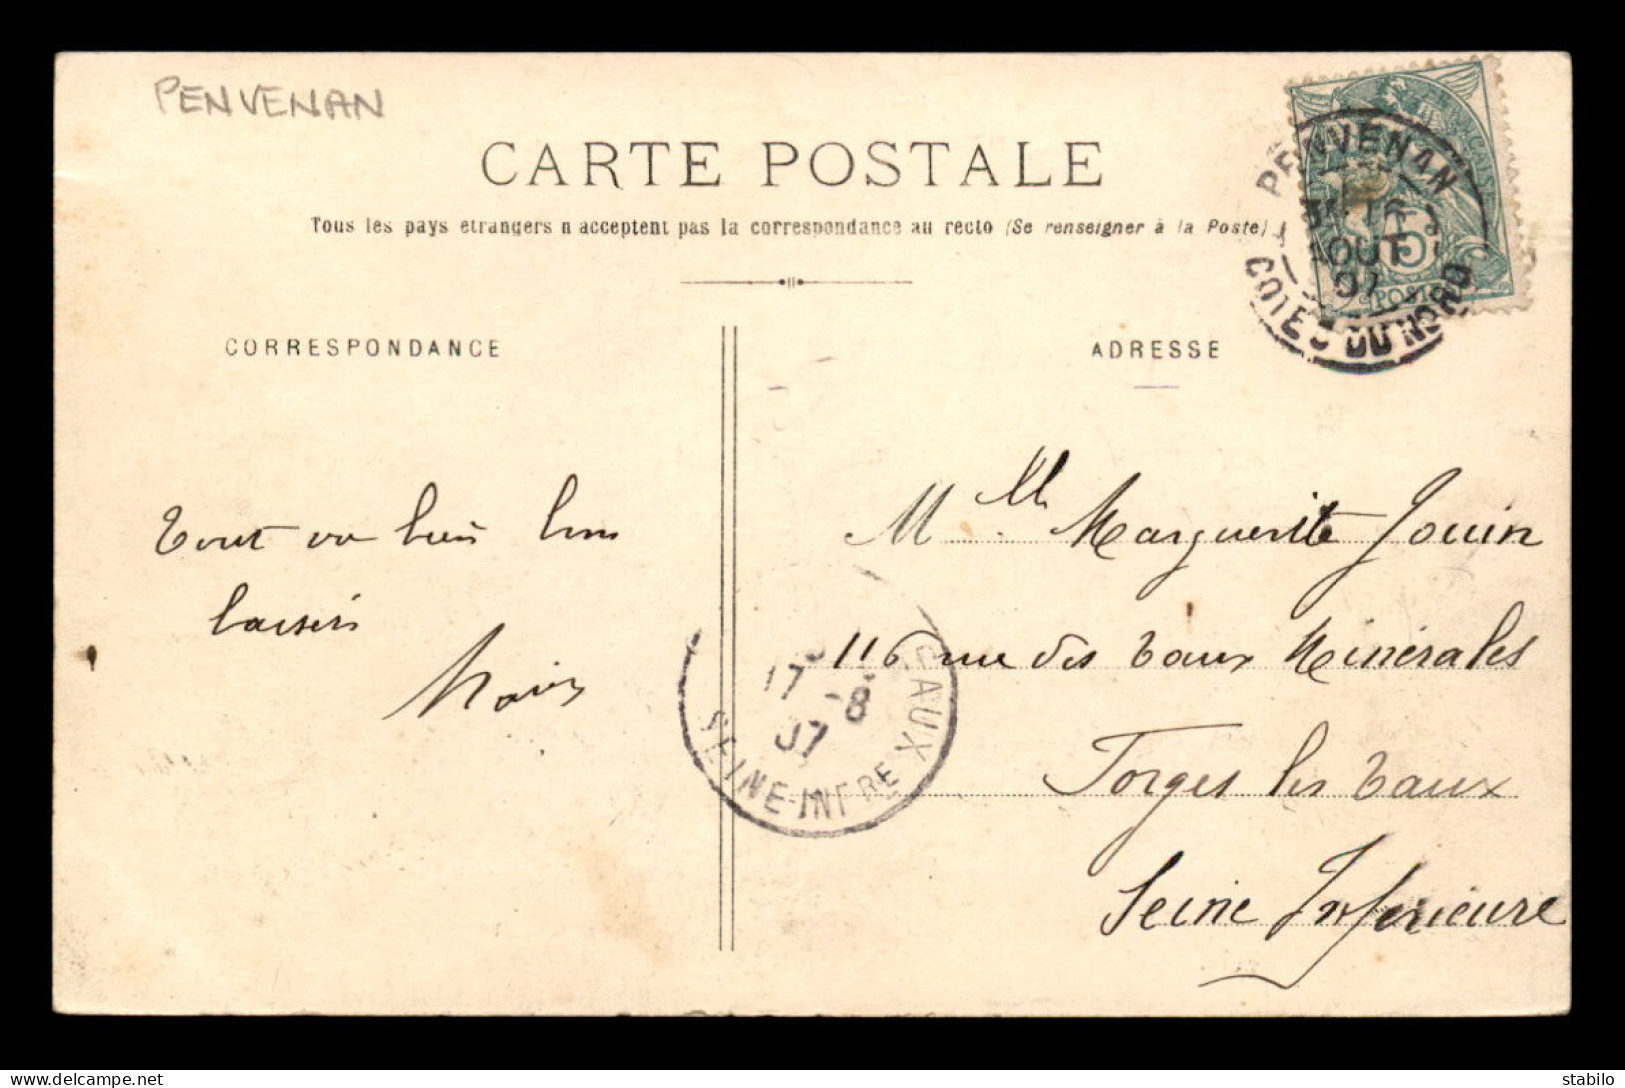 PENVENAN
CARTE POSTALE
Tous les pays etrangers n acceptent pas la correspondance au recto (Se renseigner à la Poste)
PENVENAN
16
AOUT
07
COTES DU NORD
POSTES
CORRESPONDANCE
ADRESSE
Tout va bien bons
baisers
Mlle Marguerite Jouin
116 rue des Eaux Minérales
Forges les Eaux
Seine Inférieure
EAUX
17 -8
07
SEINE-INFRE
delcampe.net
slabo